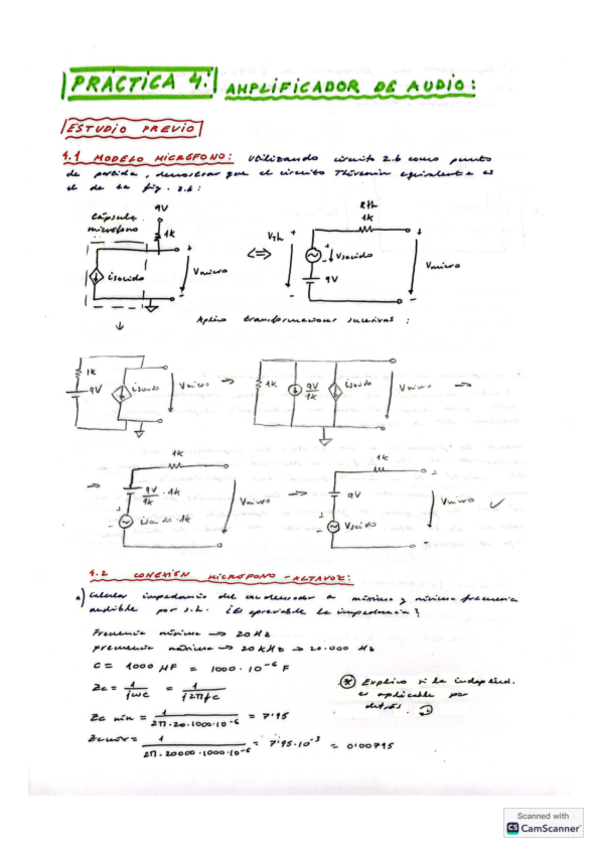 PRÁCTICA 4: AMPLIFICADOR DE AUDIO:
ESTUDIO PREVIO
4.1 MODELO MICRÓFONO: Utilizando circuito 2.6 como punto
de partida, demostrar que el circuito Thévenin equivalente es
el de la fig. 2.6:
9V
Cápsula
micrófono
1K
isonido
+
Vmicro
-
<=>
Vth
+
-
Rth
1K
Vsonido
9V
+
Vmicro
-
Aplico transformaciones sucesivas:
1K
9V
isonido
Vmicro
1K
9V/1K
isonido
Vmicro
1K
9V/1K · 1K
isonido · 1K
Vmicro
1K
+
9V
Vsonido
Vmicro
-
4.2 CONEXIÓN MICRÓFONO-ALTAVOZ:
a) Calcular impedancia del condensador a máxima y mínima frecuencia
audible por s.h. ¿Es apreciable la impedancia?
Frecuencia mínima -> 20 Hz
frecuencia máxima -> 20 kHz -> 20.000 Hz
C = 1000 µF = 1000 · 10⁻⁶ F
Zc = 1/jωC = 1/j2πfC
* Explico si la
es aplicable por
detrás.
Zc min = 1/(2π · 20 · 1000 · 10⁻⁶) = 7'95
Zc máx = 1/(2π · 20000 · 1000 · 10⁻⁶) = 7'95 · 10⁻³ = 0'00795
Scanned with
CS CamScanner